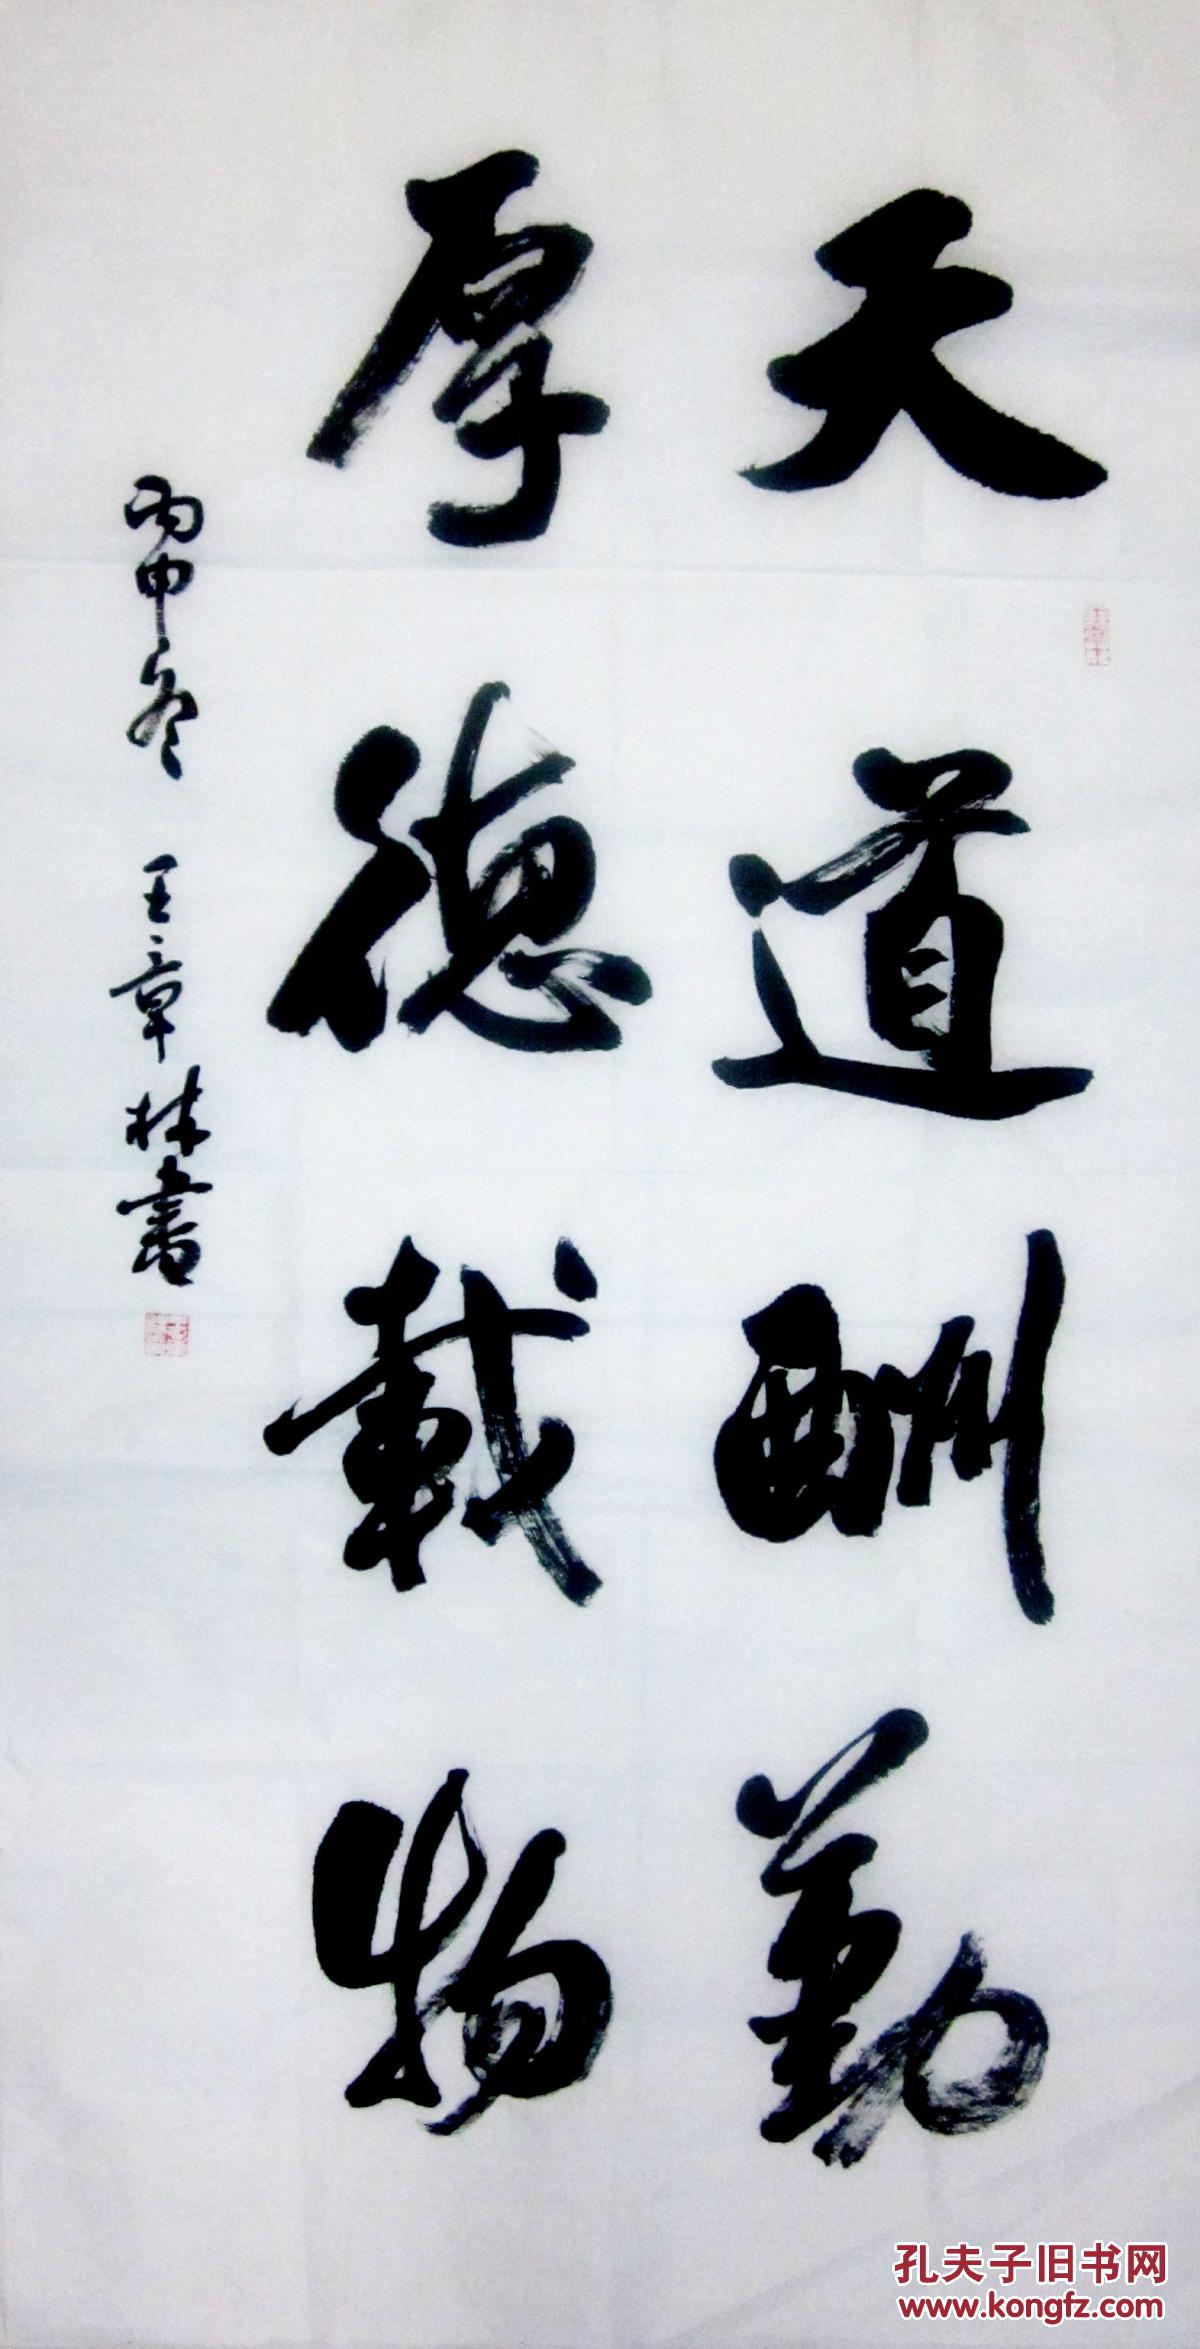 天道酬勤
厚德载物
丙申冬 王章林書
孔夫子旧书网
www.kongfz.com